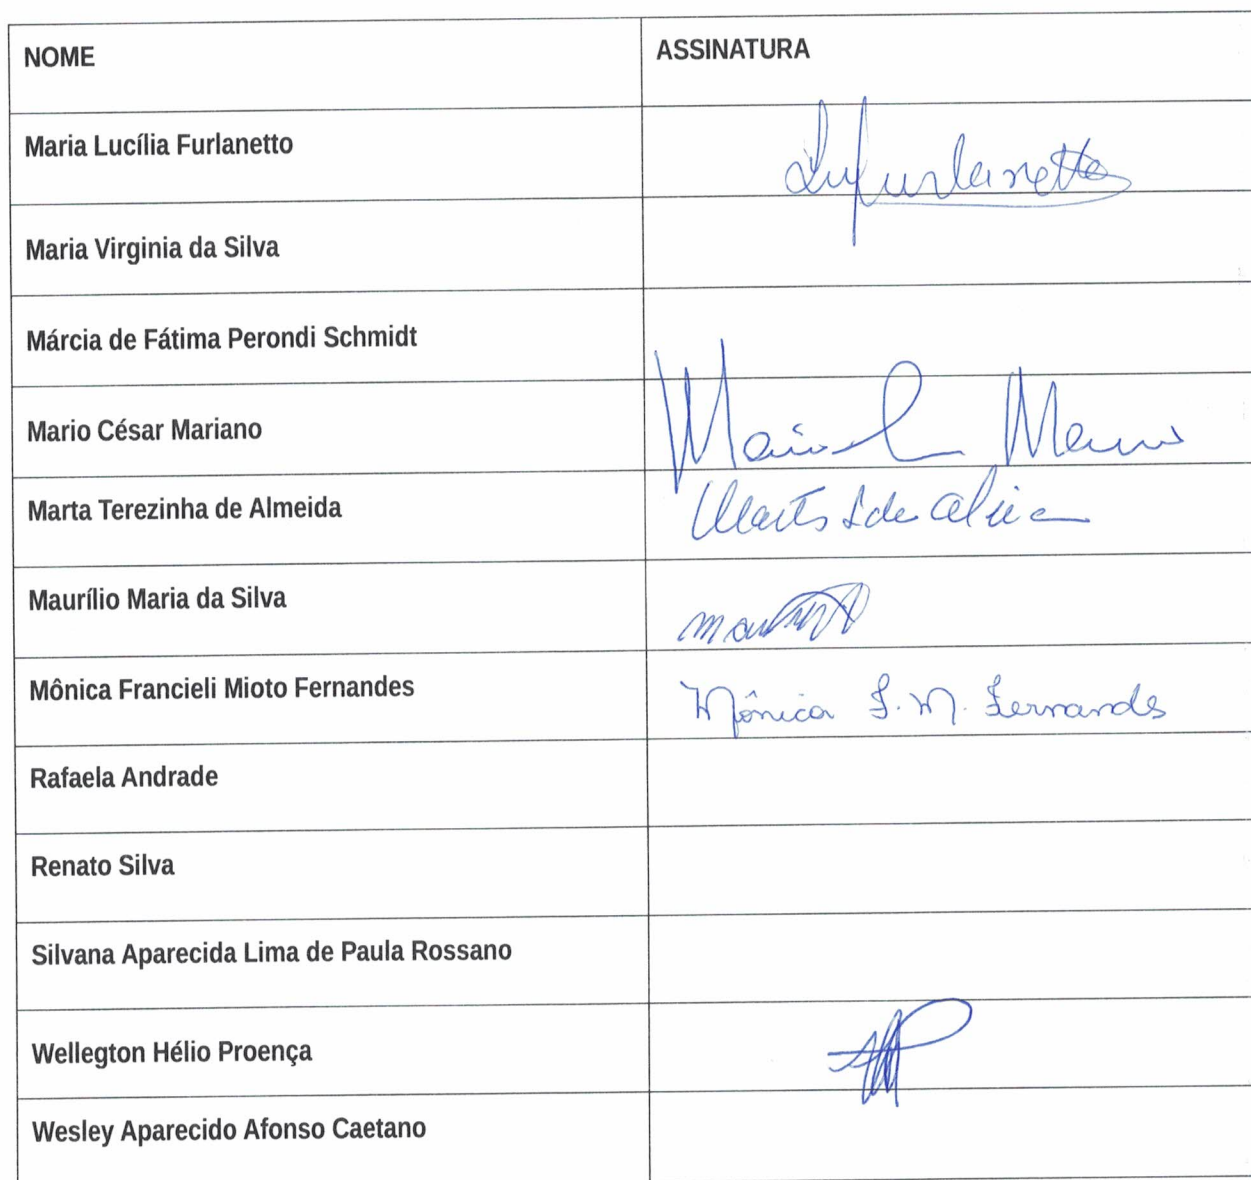 NOME ASSINATURA
Maria Lucília Furlanetto Lufurlanetto
Maria Virginia da Silva
Márcia de Fátima Perondi Schmidt
Mario César Mariano
Marta Terezinha de Almeida
Maurílio Maria da Silva
Mônica Francieli Mioto Fernandes Mônica F. M. Fernandes
Rafaela Andrade
Renato Silva
Silvana Aparecida Lima de Paula Rossano
Wellegton Hélio Proença
Wesley Aparecido Afonso Caetano